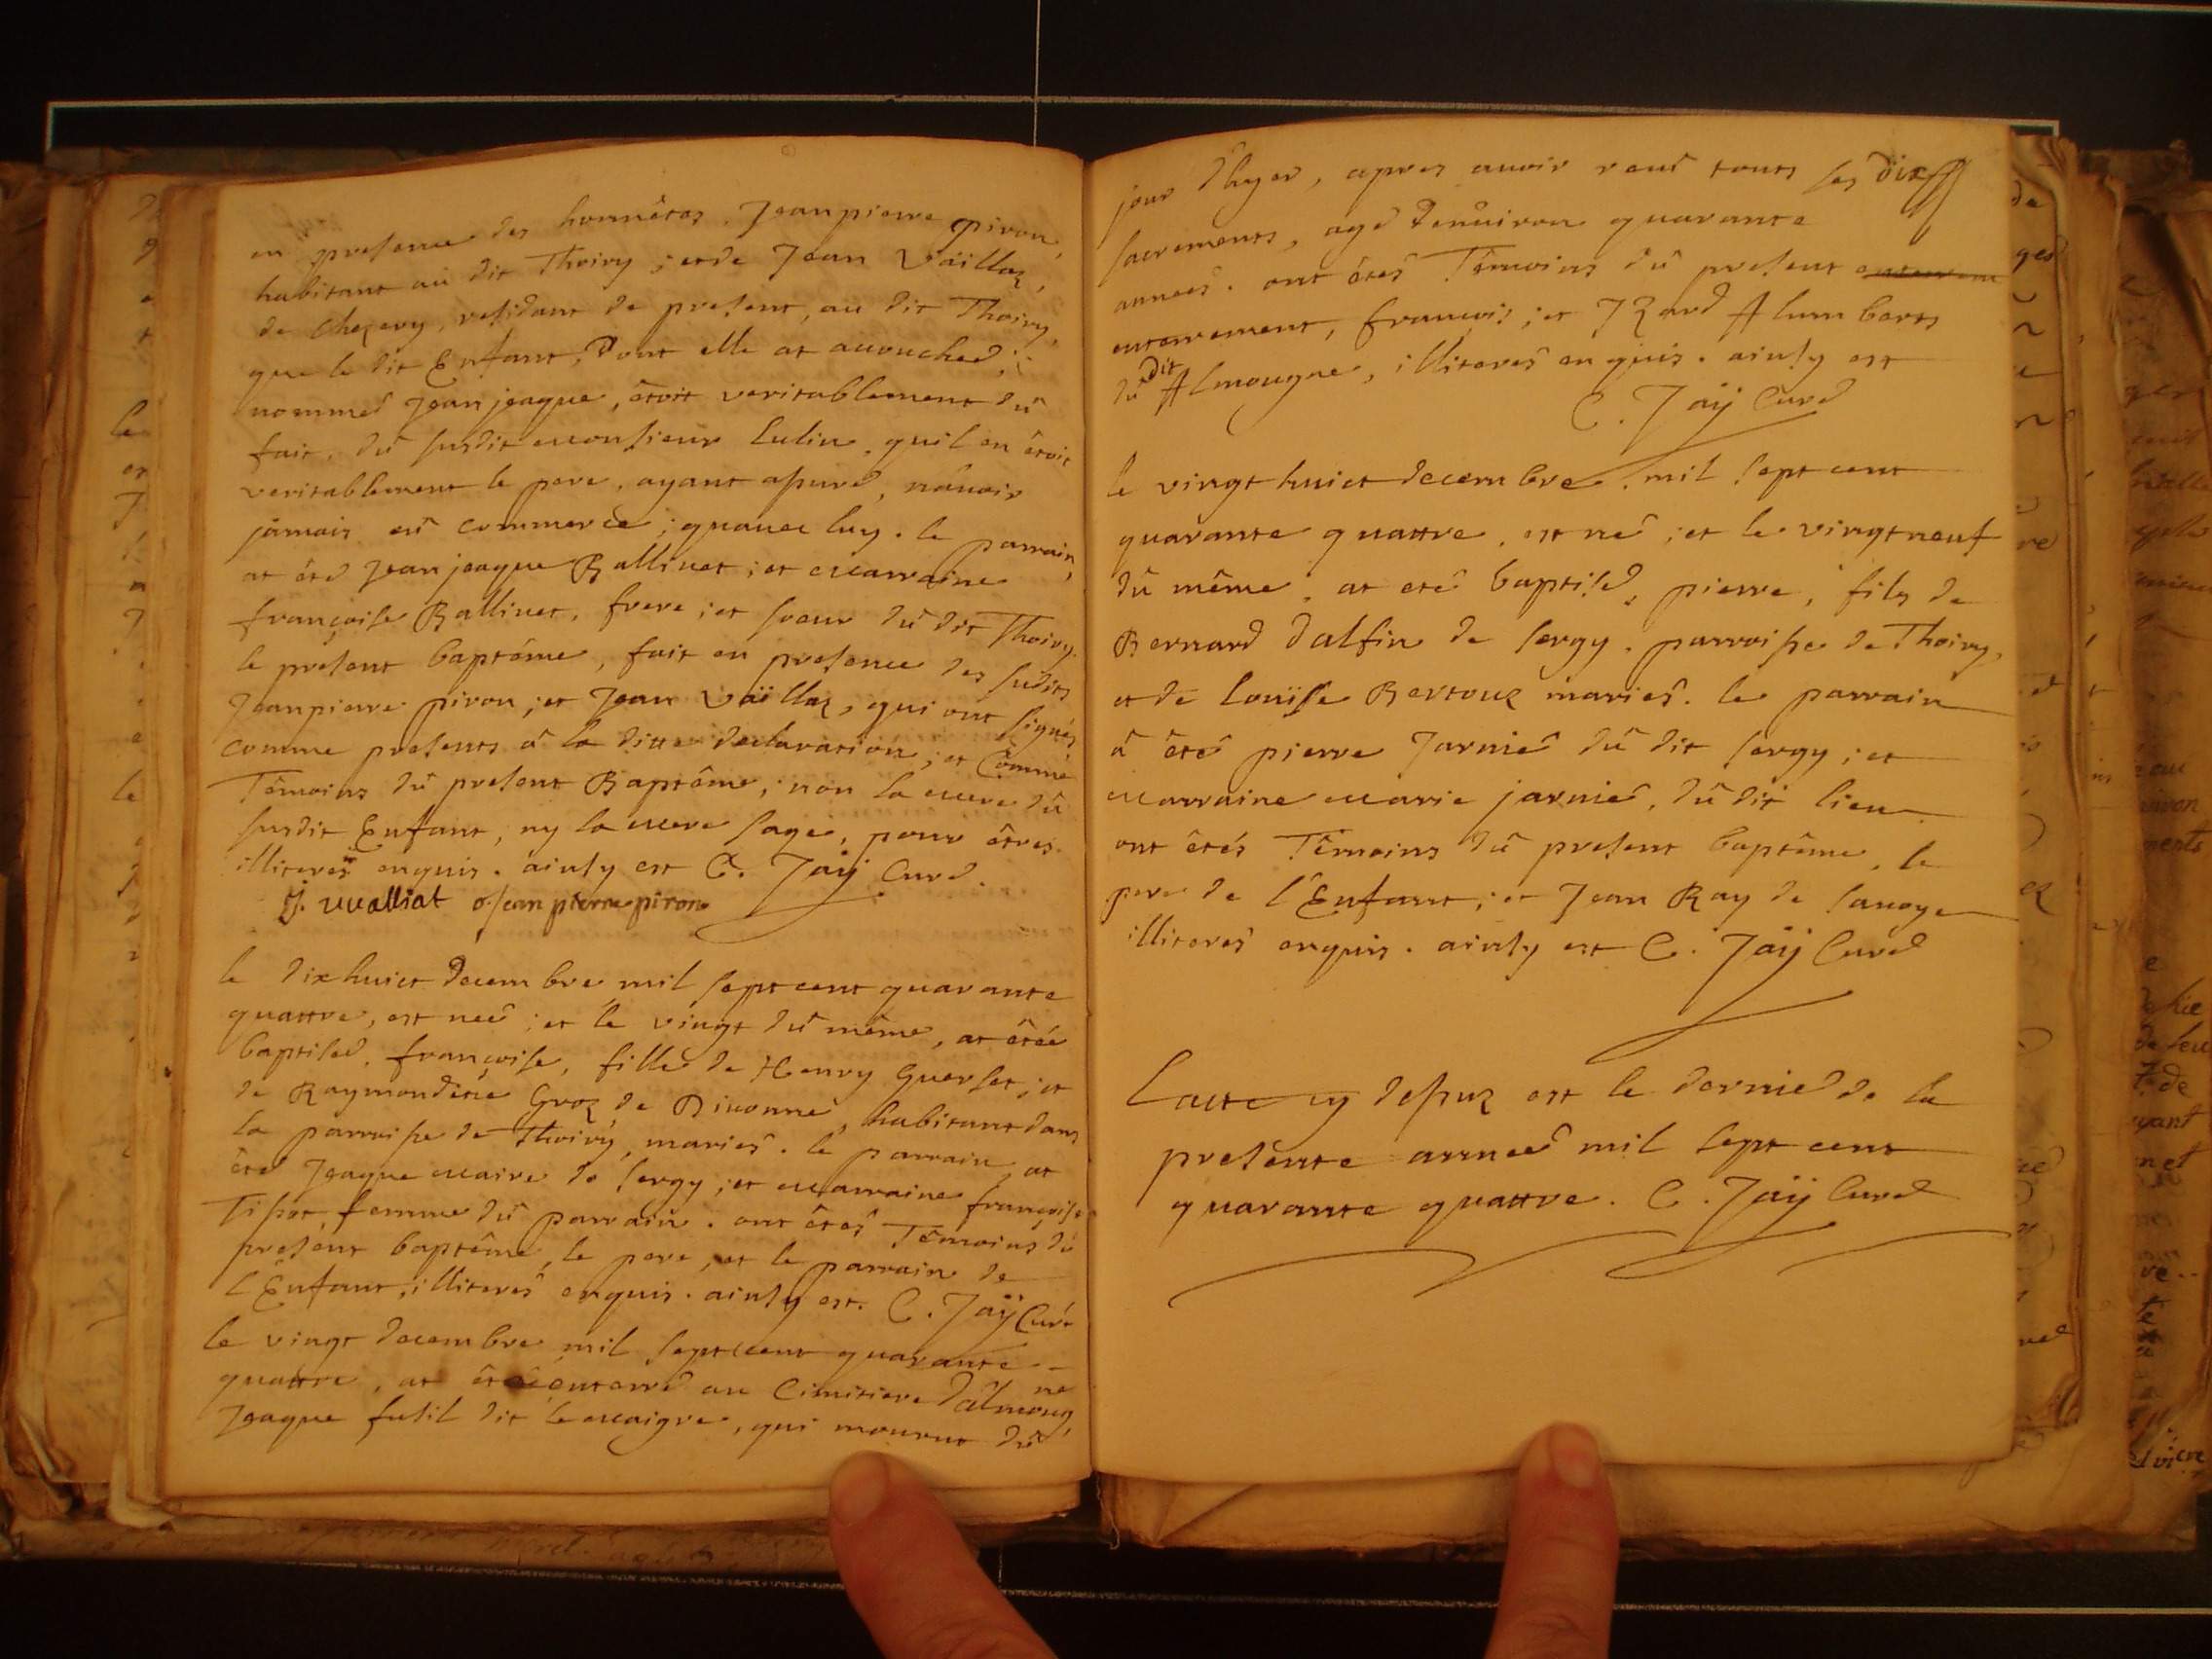 en presence des honnêtes, Jeanpierre piron,
habitant au dit Thoiry ; et de Jean Vaillaz,
de Chezery, residant de present, au dit Thoiry,
que le dit Enfant, Dont elle at acouched,
nommed Jeanjeaque, étoit veritablement du
fait, du susdit monsieur Lulin, quil en étoit
veritablement le pere, ayant assured, nâuoir
jamais eu commerce ; quauec luy. le parrain,
at eté Jeanjeaque Ballinet ; et marraine
françoise Ballinet, frere ; et soeur du dit Thoiry.
le present baptême, fait en presence des sudits
Jeanpierre piron ; et Jean Vaillaz, qui ont signés
comme presents â la ditte declaration ; et Comme
Têmoins du present Baptême ; non la mere du
susdit Enfant, ny la mere sage, pour êtres
illiterés enquis. ainsy est C. Jaÿ Curé.
J. vualliat Jean pierre piron
le dixhuict Decembre mil septcent quarante
quattre, est neé ; et le vingt du même, at êteé
baptised, françoise, fille de Henry Guerset ; et
de Raymondine Groz de Diuonne, habitant dans
la parroisse de Thoiry, mariés. le parrain, at
eté Jeaque maire de sergy ; et marraine françoise
Tissot, femme du parrain. ont êtes Têmoins du
present baptême, le pere, et le parrain de
l'Enfant, illiterés enquis. ainsy est. C. Jaÿ Curé
le vingt decembre mil septcent quarante
quattre, at êté enterré au Cimitiere Dalmougne
Jeaque fusil dit le maigre, qui mourut du
jour Dhyer, apres auoir reçu touts les dit
sacrements, agé Denuiron quarante
anneés. ont êtes Têmoins du present
enterrement, françois ; et JZard Alumbarts
du dit Almougne, illiterés enquis. ainsy est
C. Jaÿ Curé
le vingthuict decembre mil sept cent
quarante quattre, est né ; et le vingtneuf
du même, at eté baptised, pierre, fils de
Bernard Dalfin de sergy, parroisse de Thoiry,
et de Louïse Bertouz mariés. le parrain
â êté pierre Jarnié du dit sergy ; et
marraine marie jarnié, du dit lieu
ont êtés Têmoins du present baptême, le
pere de l'Enfant ; et Jean Ray de sauoye
illiterés enquis. ainsy est C. Jaÿ Curé
Lacte cy dessuz est le dernied de la
presente anneé mil sept cent
quarante quattre. C. Jaÿ Curé